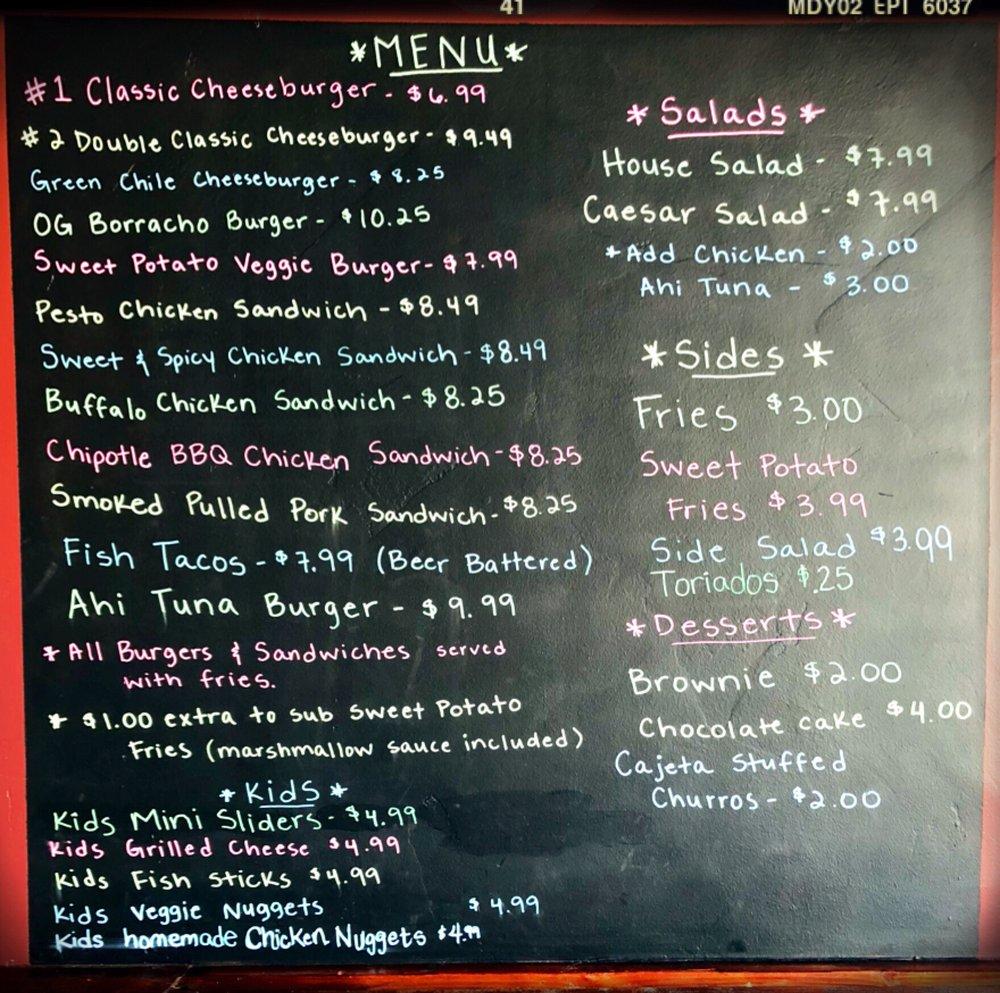 41
MDY02 EPI 6037
*MENU*
#1 Classic Cheeseburger - $6.99
#2 Double Classic Cheeseburger - $9.49
Green Chile Cheeseburger - $8.25
OG Borracho Burger - $10.25
Sweet Potato Veggie Burger - $7.99
Pesto Chicken Sandwich - $8.49
Sweet & Spicy Chicken Sandwich - $8.49
Buffalo Chicken Sandwich - $8.25
Chipotle BBQ Chicken Sandwich - $8.25
Smoked Pulled Pork Sandwich - $8.25
Fish Tacos - $7.99 (Beer Battered)
Ahi Tuna Burger - $9.99
* All Burgers & Sandwiches served
with fries.
* $1.00 extra to sub Sweet Potato
Fries (marshmallow sauce included)
*Kids*
Kids Mini Sliders - $4.99
Kids Grilled Cheese $4.99
Kids Fish Sticks $4.99
Kids Veggie Nuggets $4.99
Kids homemade Chicken Nuggets $4.99
*Salads*
House Salad - $7.99
Caesar Salad - $7.99
*Add Chicken - $2.00
Ahi Tuna - $3.00
*Sides*
Fries $3.00
Sweet Potato
Fries $3.99
Side Salad $3.99
Toriados $.25
*Desserts*
Brownie $2.00
Chocolate cake $4.00
Cajeta Stuffed
Churros - $2.00